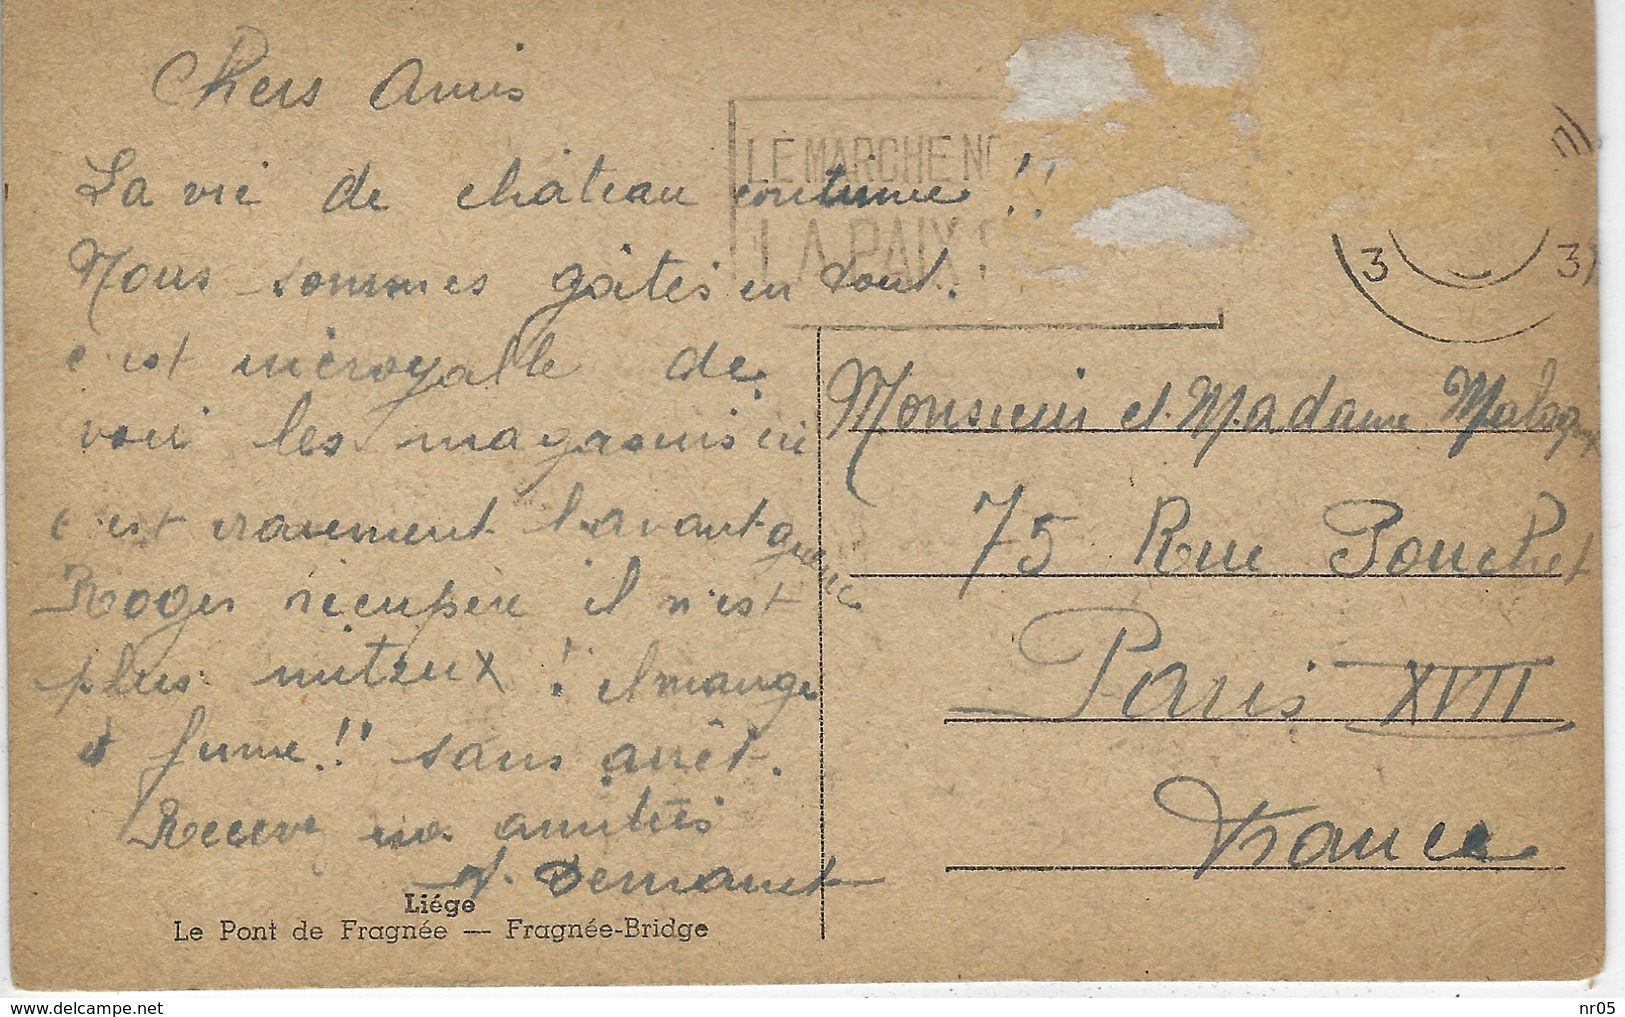 Chers Amis
La vie de château continue !!
Nous sommes gâtés en tout.
c'est incroyable de
voir les magasins ici
c'est vraiment l'avant guerre
Roger récupère il n'est
plus miteux ! il mange
et fume !! sans arrêt.
Recevez nos amitiés
Demaret
Liége
Le Pont de Fragnée — Fragnée-Bridge
LE MARCHE NO
LA PAIX
3 3
Monsieur et Madame
75 Rue Pouchet
Paris XVII
France
delcampe.net
nr05